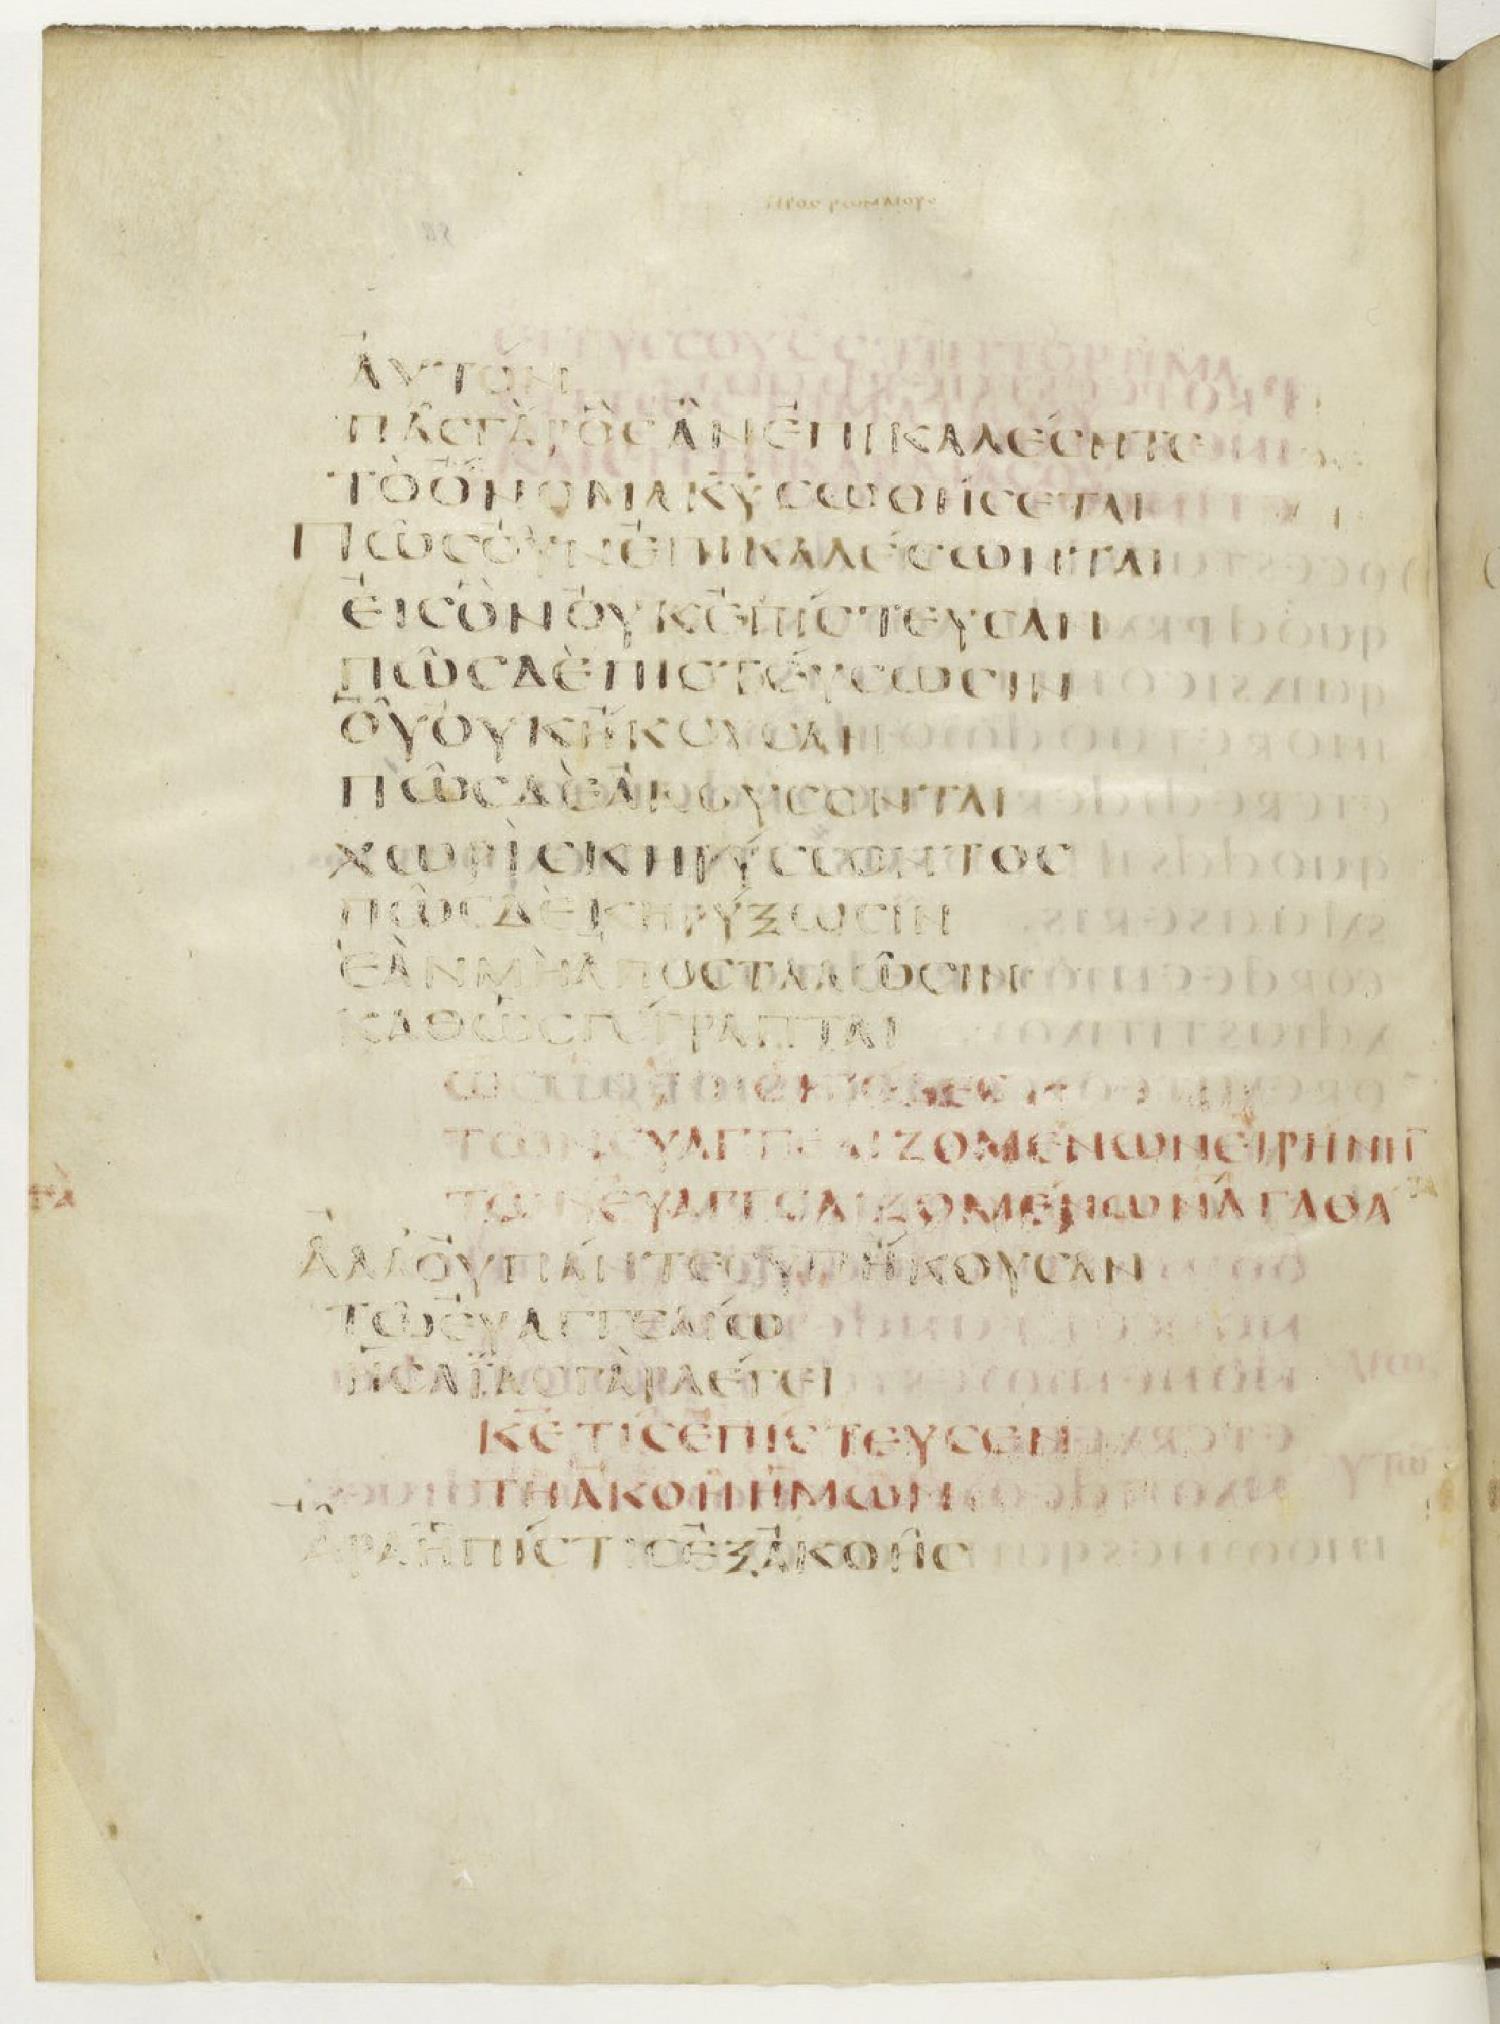 ΠΡΟΣ ΡΩΜΑΙΟΥΣ
ΑΥΤΟΝ
ΠΑϹΓΑΡΟϹΑΝΕΠΙΚΑΛΕϹΗΤΕ
ΤΟΟΝΟΜΑΚΥϹΩΘΗϹΕΤΑΙ
ΠΩϹΟΥΝΕΠΙΚΑΛΕϹΩΝΤΑΙ
ΕΙϹΟΝΟΥΚΕΠΙϹΤΕΥϹΑΝ
ΠΩϹΔΕΠΙϹΤΕΥϹΩϹΙΝ
ΟΥΟΥΚΗΚΟΥϹΑΝ
ΠΩϹΔΕΑΚΟΥϹΟΝΤΑΙ
ΧΩΡΙϹΚΗΡΥϹϹΟΝΤΟϹ
ΠΩϹΔΕΚΗΡΥΞΩϹΙΝ
ΕΑΝΜΗΑΠΟϹΤΑΛΩϹΙΝ
ΚΑΘΩϹΓΕΓΡΑΠΤΑΙ
ΤΩΝΕΥΑΓΓΕΛΙΖΟΜΕΝΩΝΕΙΡΗΝΗΝ
ΤΩΝΕΥΑΓΓΕΛΙΖΟΜΕΝΩΝΑΓΑΘΑ
ΤΑ
ΑΛΛΟΥΠΑΝΤΕϹΥΠΗΚΟΥϹΑΝ
ΤΩΕΥΑΓΓΕΛΙΩ
ΗϹΑΪΑϹΓΑΡΛΕΓΕΙ
ΚΕΤΙϹΕΠΙϹΤΕΥϹΕΝ
ΤΗΑΚΟΗΗΜΩΝ
ΑΡΑΗΠΙϹΤΙϹΕΞΑΚΟΗϹ